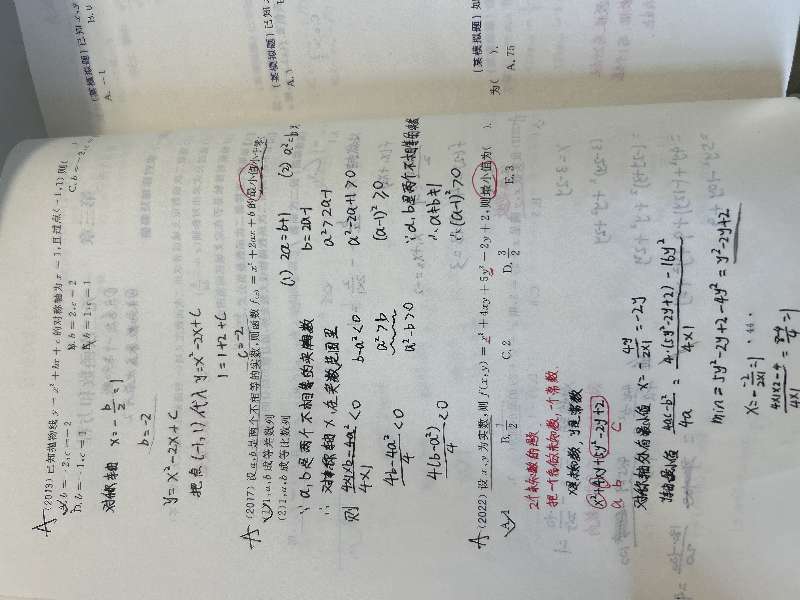 (某模拟题)已知 x,y
A. -1
(某模拟题)已知
A.
(某模拟题)如
为( ).
A. 75
A (2013)已知抛物线 y=x²+bx+c 的对称轴为 x=1,且过点(-1,1),则(
A. b=-2,c=-2
B. b=2,c=2
C. b=-2,c
D. b=-1,c=-1
E. b=1,c=1
对称轴 x=-b/2=1
b=-2
y=x²-2x+c
把点(-1,1)代入y=x²-2x+c
1=1+2+c
c=-2
A (2017)设 a,b 是两个不相等的实数,则函数 f(x)=x²+2ax+b 的最小值小于零.
(1)1,a,b 成等差数列
(2)1,a,b 成等比数列
∵a,b是两个不相等的实数
∴对称轴x,在实数范围里
则 4×1×b-4a²/4×1<0
4b-4a²/4<0
4(b-a²)/4<0
b-a²<0
a²>b
a²-b>0
(1) 2a=b+1
b=2a-1
a²>2a-1
a²-2a+1>0
(a-1)²≥0
∵a,b是两个不相等的实数
∴a≠b≠1
∴(a-1)²>0
(2) a²=b×
A (2022)设 x,y 为实数,则 f(x,y)=x²+4xy+5y²-2y+2,则最小值为( ).
A. 1
B. 1/2
C. 2
D. 3/2
E. 3
2个未知数的题
把一个当做未知数,一个常数
x是未知数,y是常数
x²+4yx+(5y²-2y+2)
a b c
对称轴处有最小值 x=-4y/2×1=-2y
4ac-b²/4a=4·(5y²-2y+2)-16y²/4×1
min=5y²-2y+2-4y²=y²-2y+2
x=--2/2×1=1
4×1×2-4/4×1=8-4/4=1